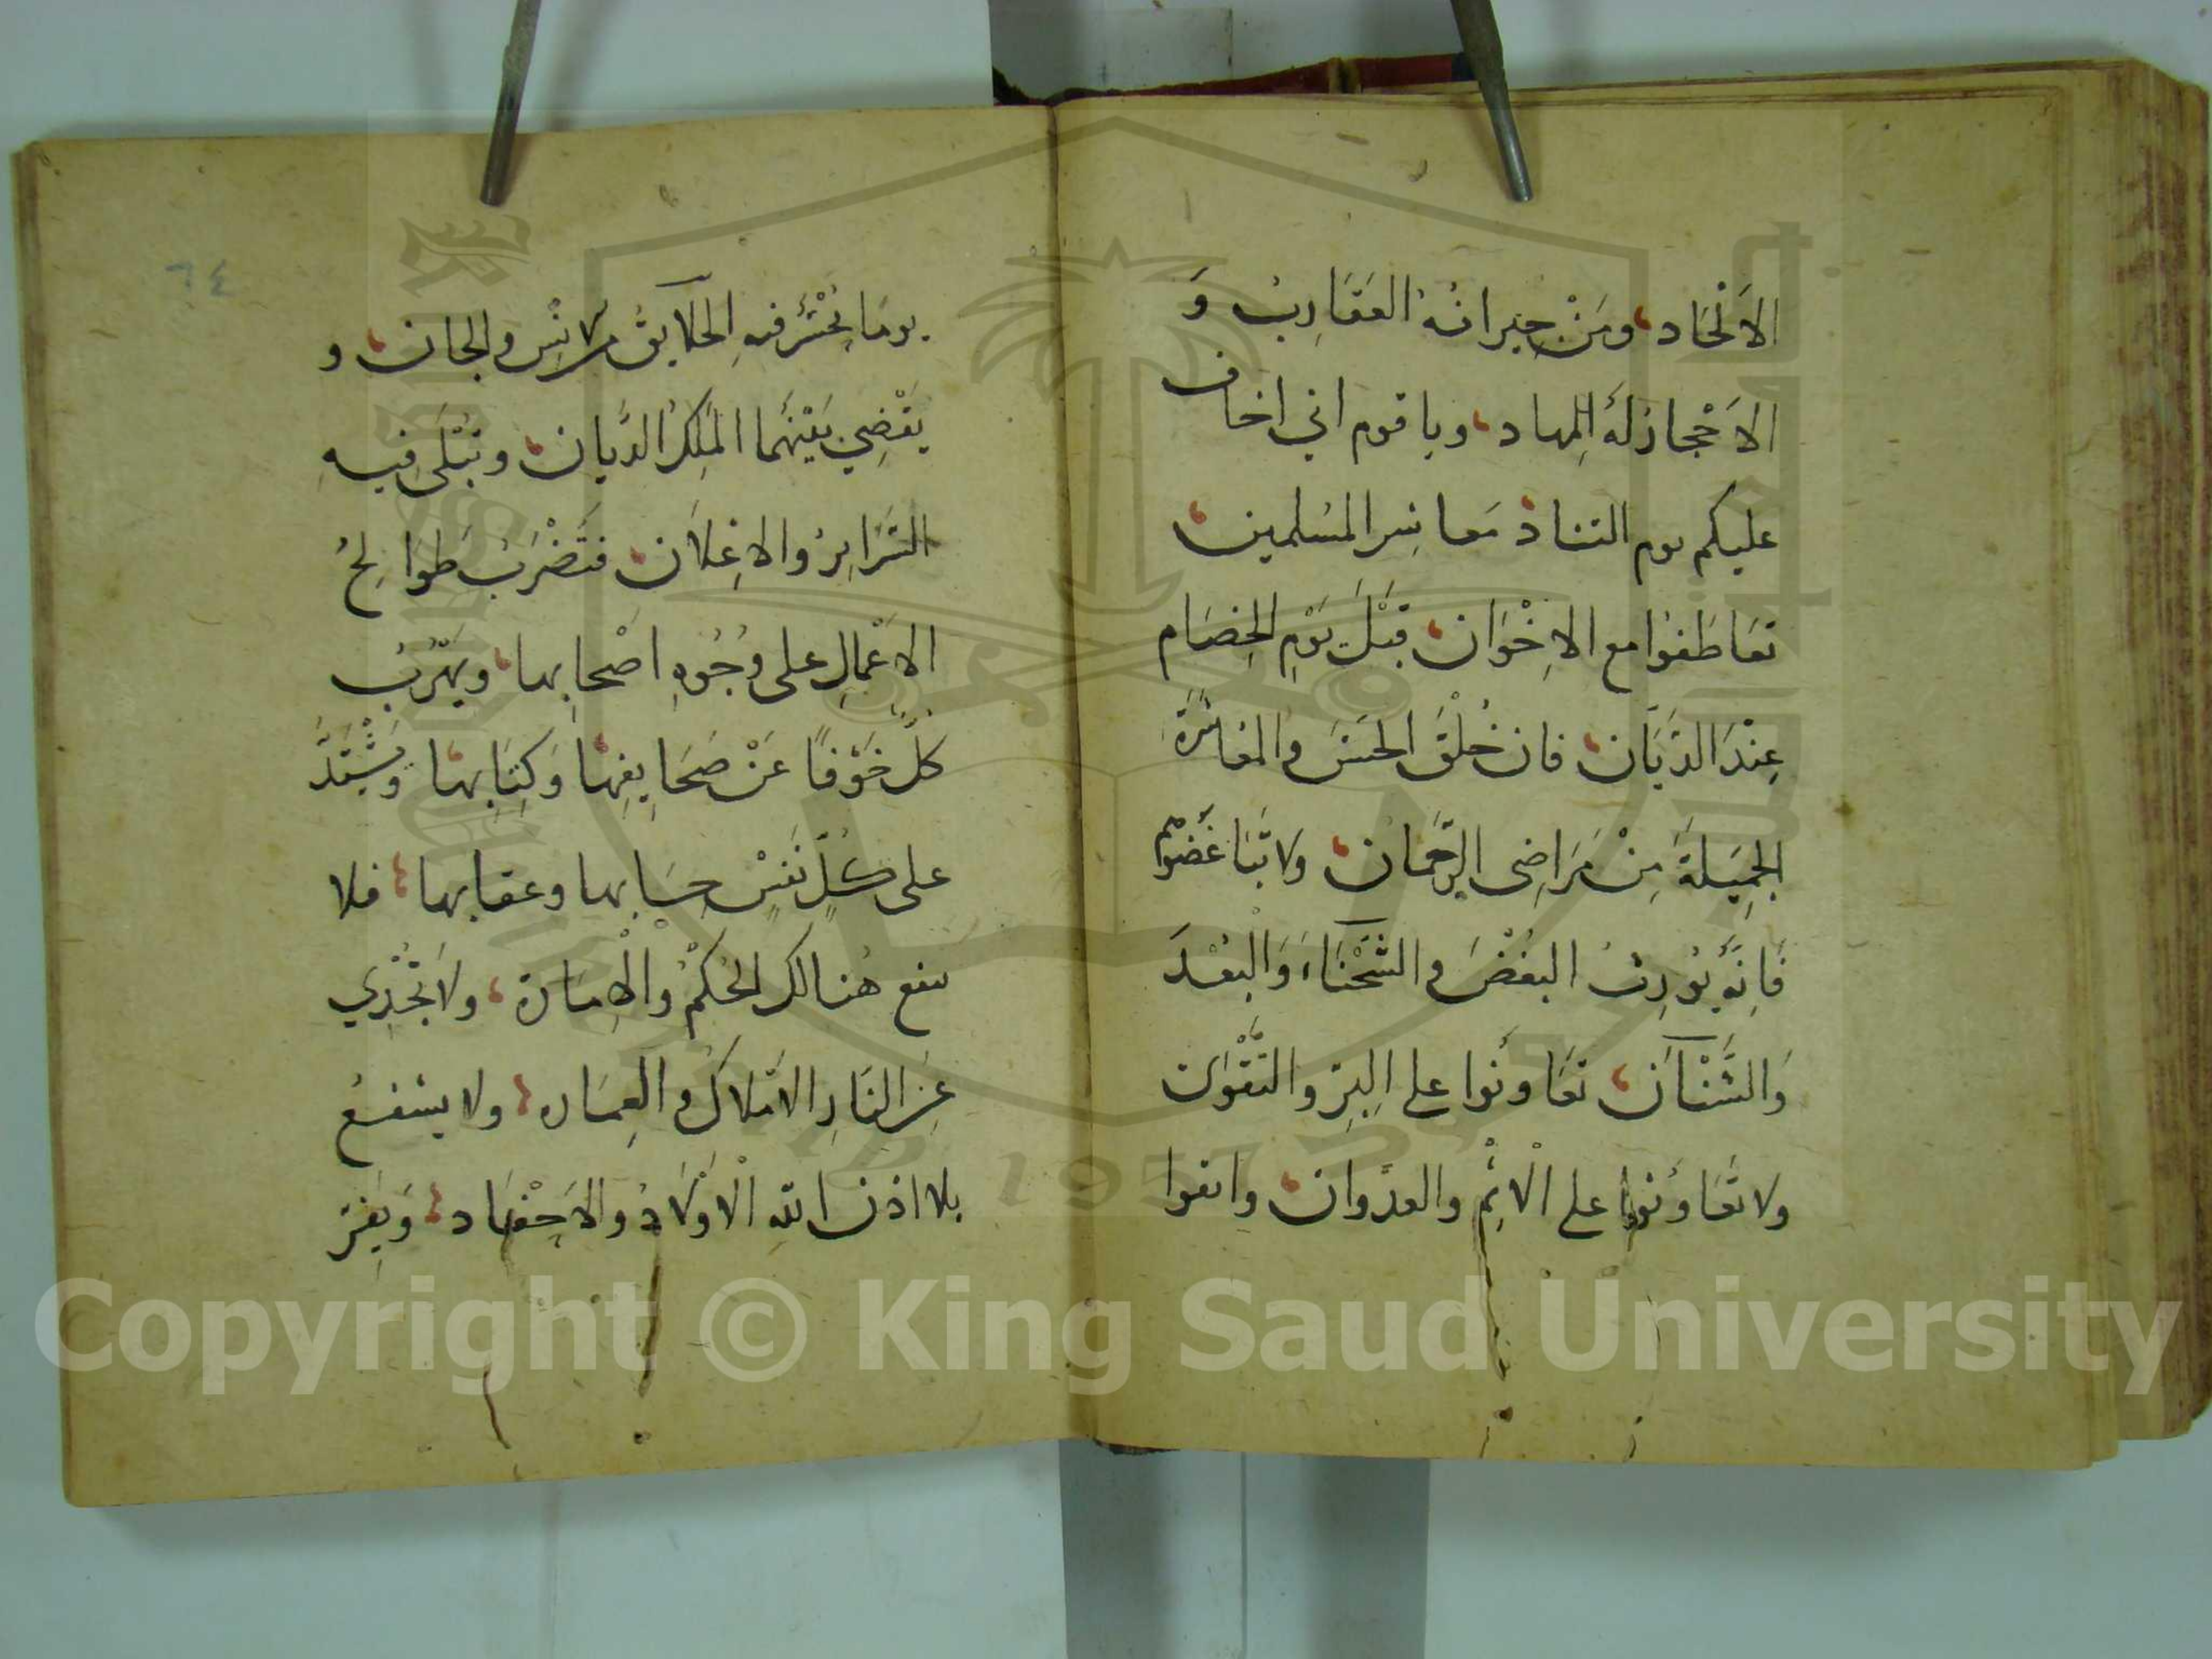 الاَلْحَاد، ومَنْ جِيرانُهُ العَقَارِبُ وَ
الاَحْجارُ لَهُ المِهاد، ويا قوم اني اخاف
عليكم يوم التناد مَعاشِرَ المسُلمين،
تعَاطَفوُا مع الاِخْوَان، قَبْلَ يَوْمِ الخِصَام
عِنْدَ الدَيَّان، فان خُلْقَ الحَسَن والمعُاشَرَةَ
الجَمِيَلةَ مِنْ مَرَاضِى الرَّحَمان، ولا تَبَاغَضوُا
فَاِنَّهُ يُورِثُ البغُضَْ والشَّحْنَاءَ، وَالْبُعْدَ
وَالشَّنْآَن، تعَاونُوا على البِرّ والتَّقْوٰى
ولا تعَاوَنُوا على الْاِثْم والعدُوان، واتقوا
٦٤
يومَا يُحْشَرُ فيهِ الخلَايِقُ من الانِسْ والجان، و
يَقْضِي بَيْنَهُما المَلِكُ الدَّيان، وتُبْلَى فيهِ
السَّرَايِرُ والاِعْلَان، فتَضْرَبُ طَوَايِحُ
الاَعْمالِ على وُجُوهِ اصْحابِها، ويَهْرُبُ
كلٌّ خَوْفًا عَنْ صَحَايِفِهَا وَكِتَابِهَا، وَيَشْتَدُّ
على كُلِّ نَفسْ حِسَابها وعقابها، فلا
ينفع هُنالك الحكُمْ والْاِمَارة، ولاَ تُجْدِي
عَنِ النَارِ الاَمْلَاكُ والعِمَاره، ولا يشفعُ
بلا اذن اللهِ الْاَوْلَادُ والاَحْفَاد، وَيَفِرُّ
Copyright © King Saud University
1957